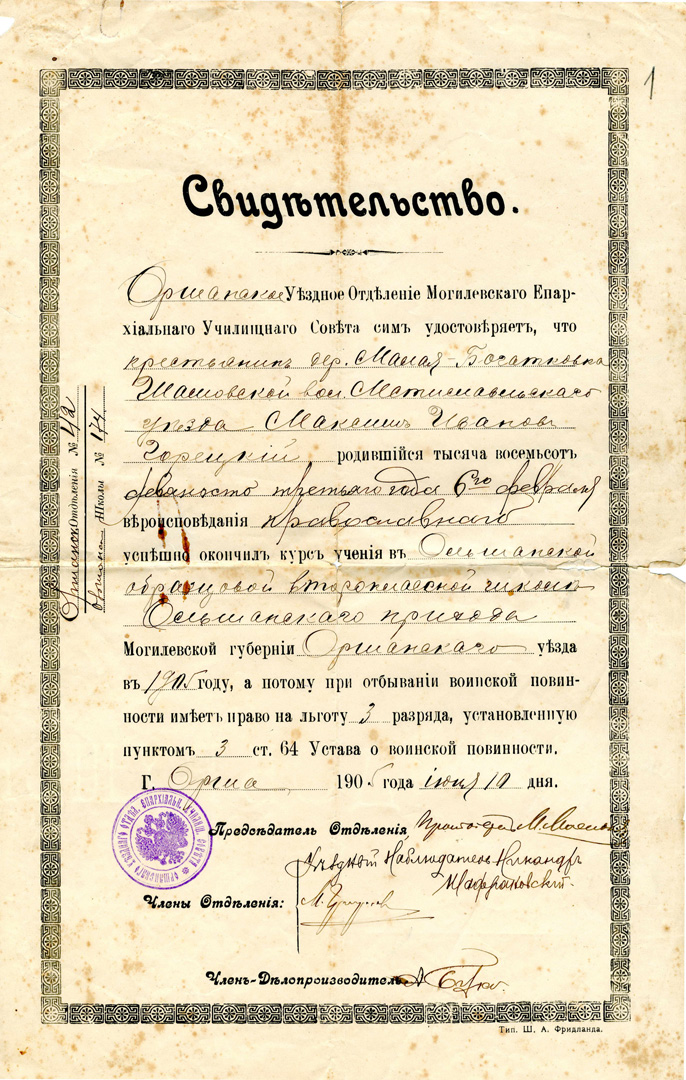 1
Свидѣтельство.
Оршанское Уѣздное Отдѣленіе Могилевскаго Епар-
хіальнаго Училищнаго Совѣта симъ удостовѣряетъ, что
крестьянинъ дер. Малая-Богатковка
Шамовской вол. Мстиславльскаго
уѣзда Максимъ Ивановъ
Горецкій родившійся тысяча восемьсотъ
девяносто третьяго года 6го февраля
вѣроисповѣданія православнаго
успѣшно окончилъ курсъ ученія въ Ольшанской
образцовой второклассной школѣ
Ольшанскаго прихода
Могилевской губерніи Оршанскаго уѣзда
въ 1905 году, а потому при отбываніи воинской повин-
ности имѣетъ право на льготу 3 разряда, установленную
пунктомъ 3 ст. 64 Устава о воинской повинности.
Г. Орша, 1905 года іюня 10 дня.
Оршанск Отдѣленія № 42
Школы № 174
Предсѣдатель Отдѣленія Протоіерей М.
Уѣздный Наблюдатель Никандръ
Члены Отдѣленія: М.
Членъ-Дѣлопроизводитель А
Тип. Ш. А. Фридланда.